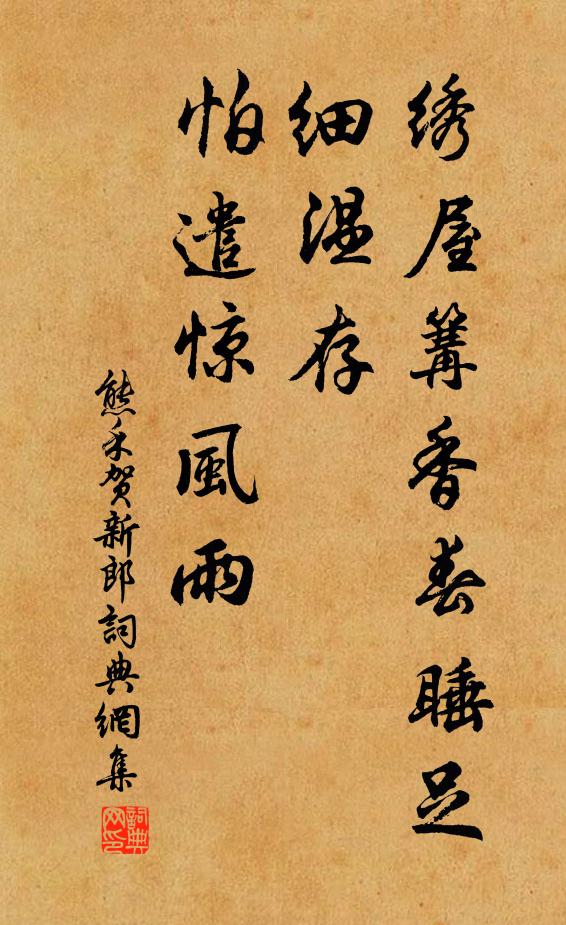 绣屋篝香春睡足
细温存
怕遣惊風雨
熊禾贺新郎詞典網集
詞典网印